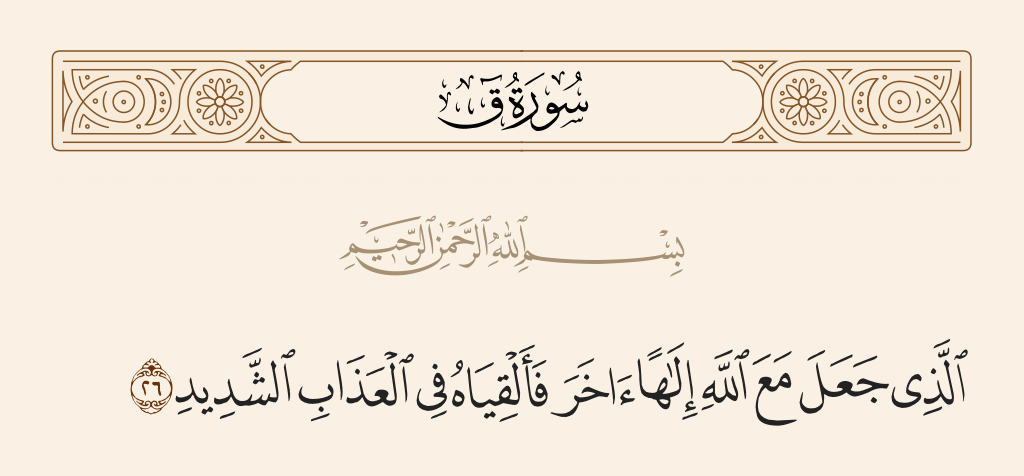 سُورَةُ قٓ
بِسْمِ ٱللَّهِ ٱلرَّحْمَٰنِ ٱلرَّحِيمِ
ٱلَّذِى جَعَلَ مَعَ ٱللَّهِ إِلَٰهًا ءَاخَرَ فَأَلْقِيَاهُ فِى ٱلْعَذَابِ ٱلشَّدِيدِ ٢٦